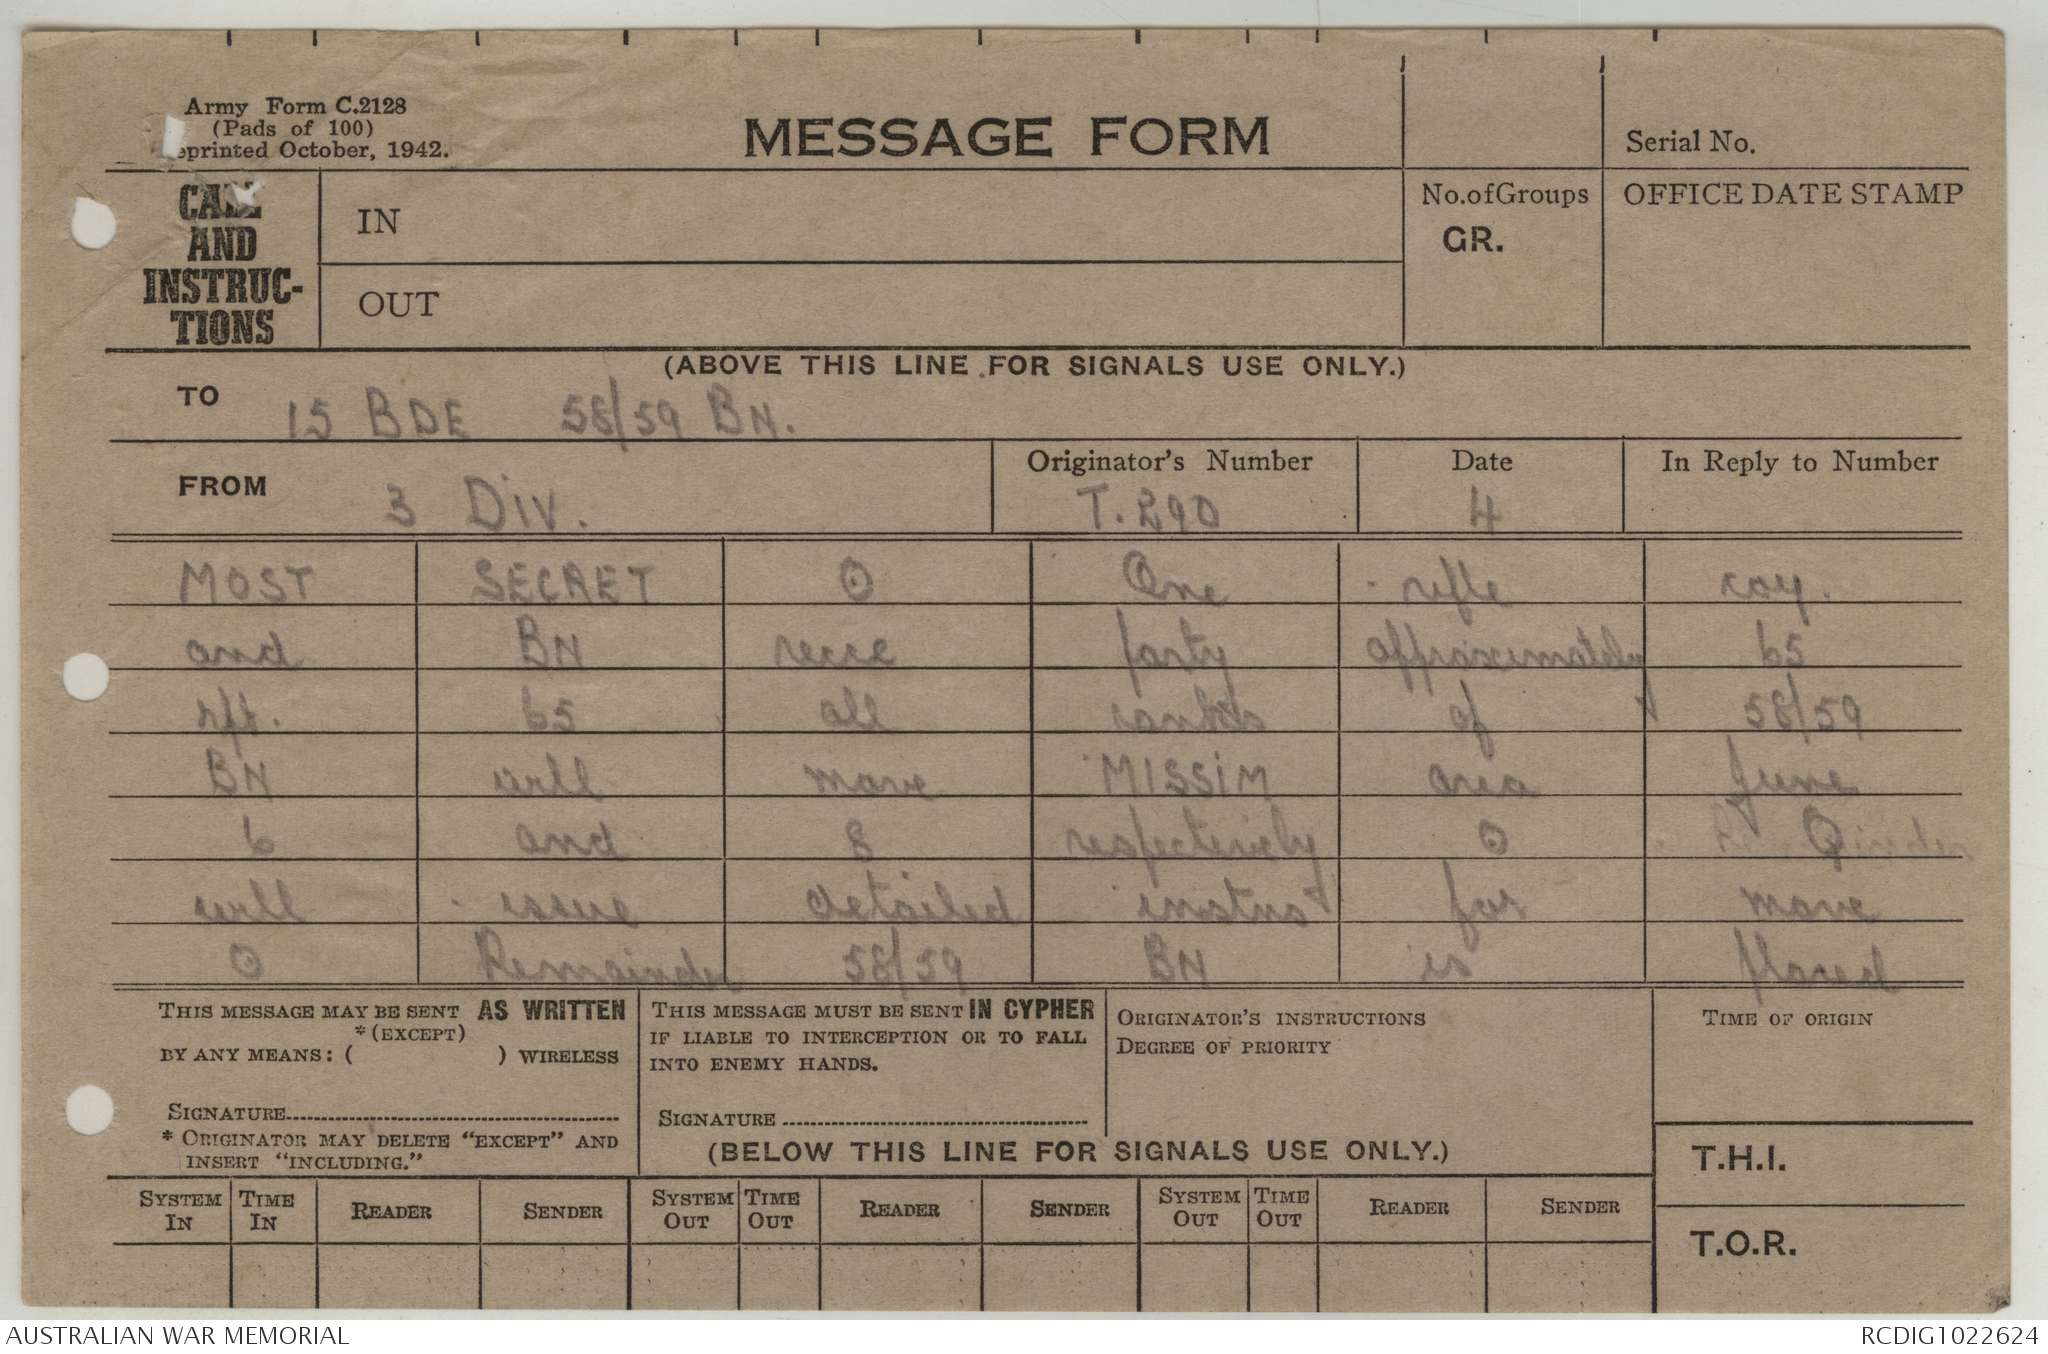 Army Form C.2128
(Pads of 100)
eprinted October, 1942.
MESSAGE FORM
Serial No.
CALL
AND
INSTRUC-
TIONS
IN
OUT
No. of Groups
GR.
OFFICE DATE STAMP
(ABOVE THIS LINE FOR SIGNALS USE ONLY.)
TO 15 BDE 58/59 BN.
FROM 3 DIV.
Originator's Number T.290
Date 4
In Reply to Number
MOST SECRET O One rifle coy.
and BN recce party approximately 65
rft. 65 all ranks of 58/59
BN will move MISSIM area June
6 and 8 respectively O Q
will issue detailed for move
O Remainder 58/59 BN is placed
THIS MESSAGE MAY BE SENT AS WRITTEN
*(EXCEPT)
BY ANY MEANS: ( ) WIRELESS
SIGNATURE
* ORIGINATOR MAY DELETE "EXCEPT" AND
INSERT "INCLUDING."
THIS MESSAGE MUST BE SENT IN CYPHER
IF LIABLE TO INTERCEPTION OR TO FALL
INTO ENEMY HANDS.
SIGNATURE
ORIGINATOR'S INSTRUCTIONS
DEGREE OF PRIORITY
TIME OF ORIGIN
(BELOW THIS LINE FOR SIGNALS USE ONLY.)
T.H.I.
T.O.R.
SYSTEM IN TIME IN READER SENDER SYSTEM OUT TIME OUT READER SENDER SYSTEM OUT TIME OUT READER SENDER
AUSTRALIAN WAR MEMORIAL
RCDIG1022624